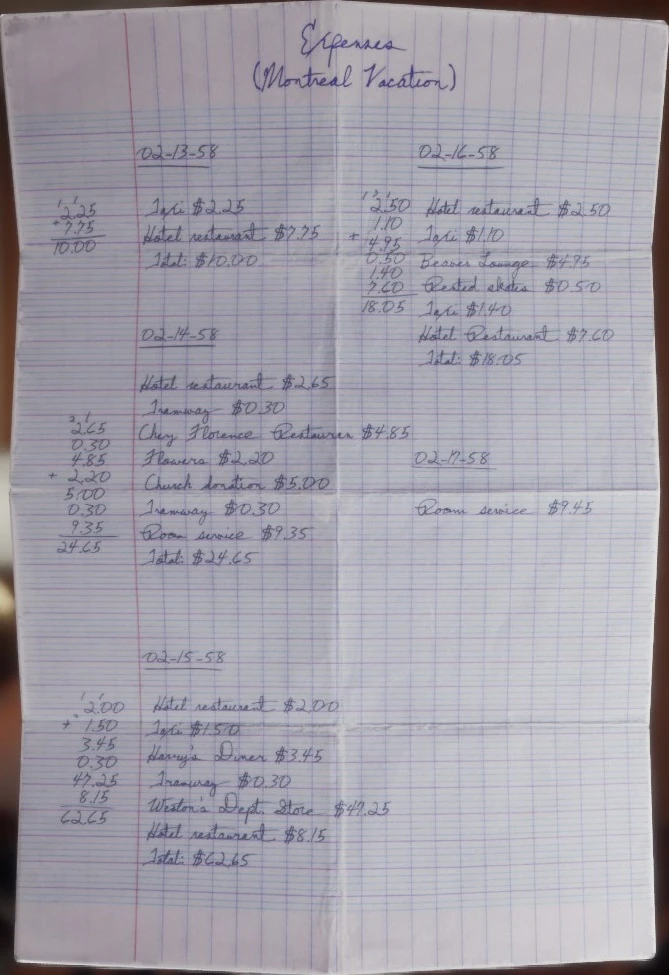 Expenses
(Montreal Vacation)
02-13-58
1 1
2.25
+ 7.75
10.00
Taxi $2.25
Hotel restaurant $7.75
Total: $10.00
02-14-58
Hotel restaurant $2.65
Tramway $0.30
Chez Florence Restauran $4.85
Flowers $2.20
Church donation $5.00
Tramway $0.30
Room service $9.35
Total: $24.65
2 1
2.65
0.30
4.85
+ 2.20
5.00
0.30
9.35
24.65
02-15-58
1 1
2.00
+ 1.50
3.45
0.30
47.25
8.15
62.65
Hotel restaurant $2.00
Taxi $1.50
Harry's Diner $3.45
Tramway $0.30
Weston's Dept. Store $47.25
Hotel restaurant $8.15
Total: $62.65
02-16-58
2.50
1.10
+ 4.95
0.50
1.40
7.60
18.05
Hotel restaurant $2.50
Taxi $1.10
Beaver Lounge $4.95
Rented skates $0.50
Taxi $1.40
Hotel Restaurant $7.60
Total: $18.05
02-17-58
Room service $9.45